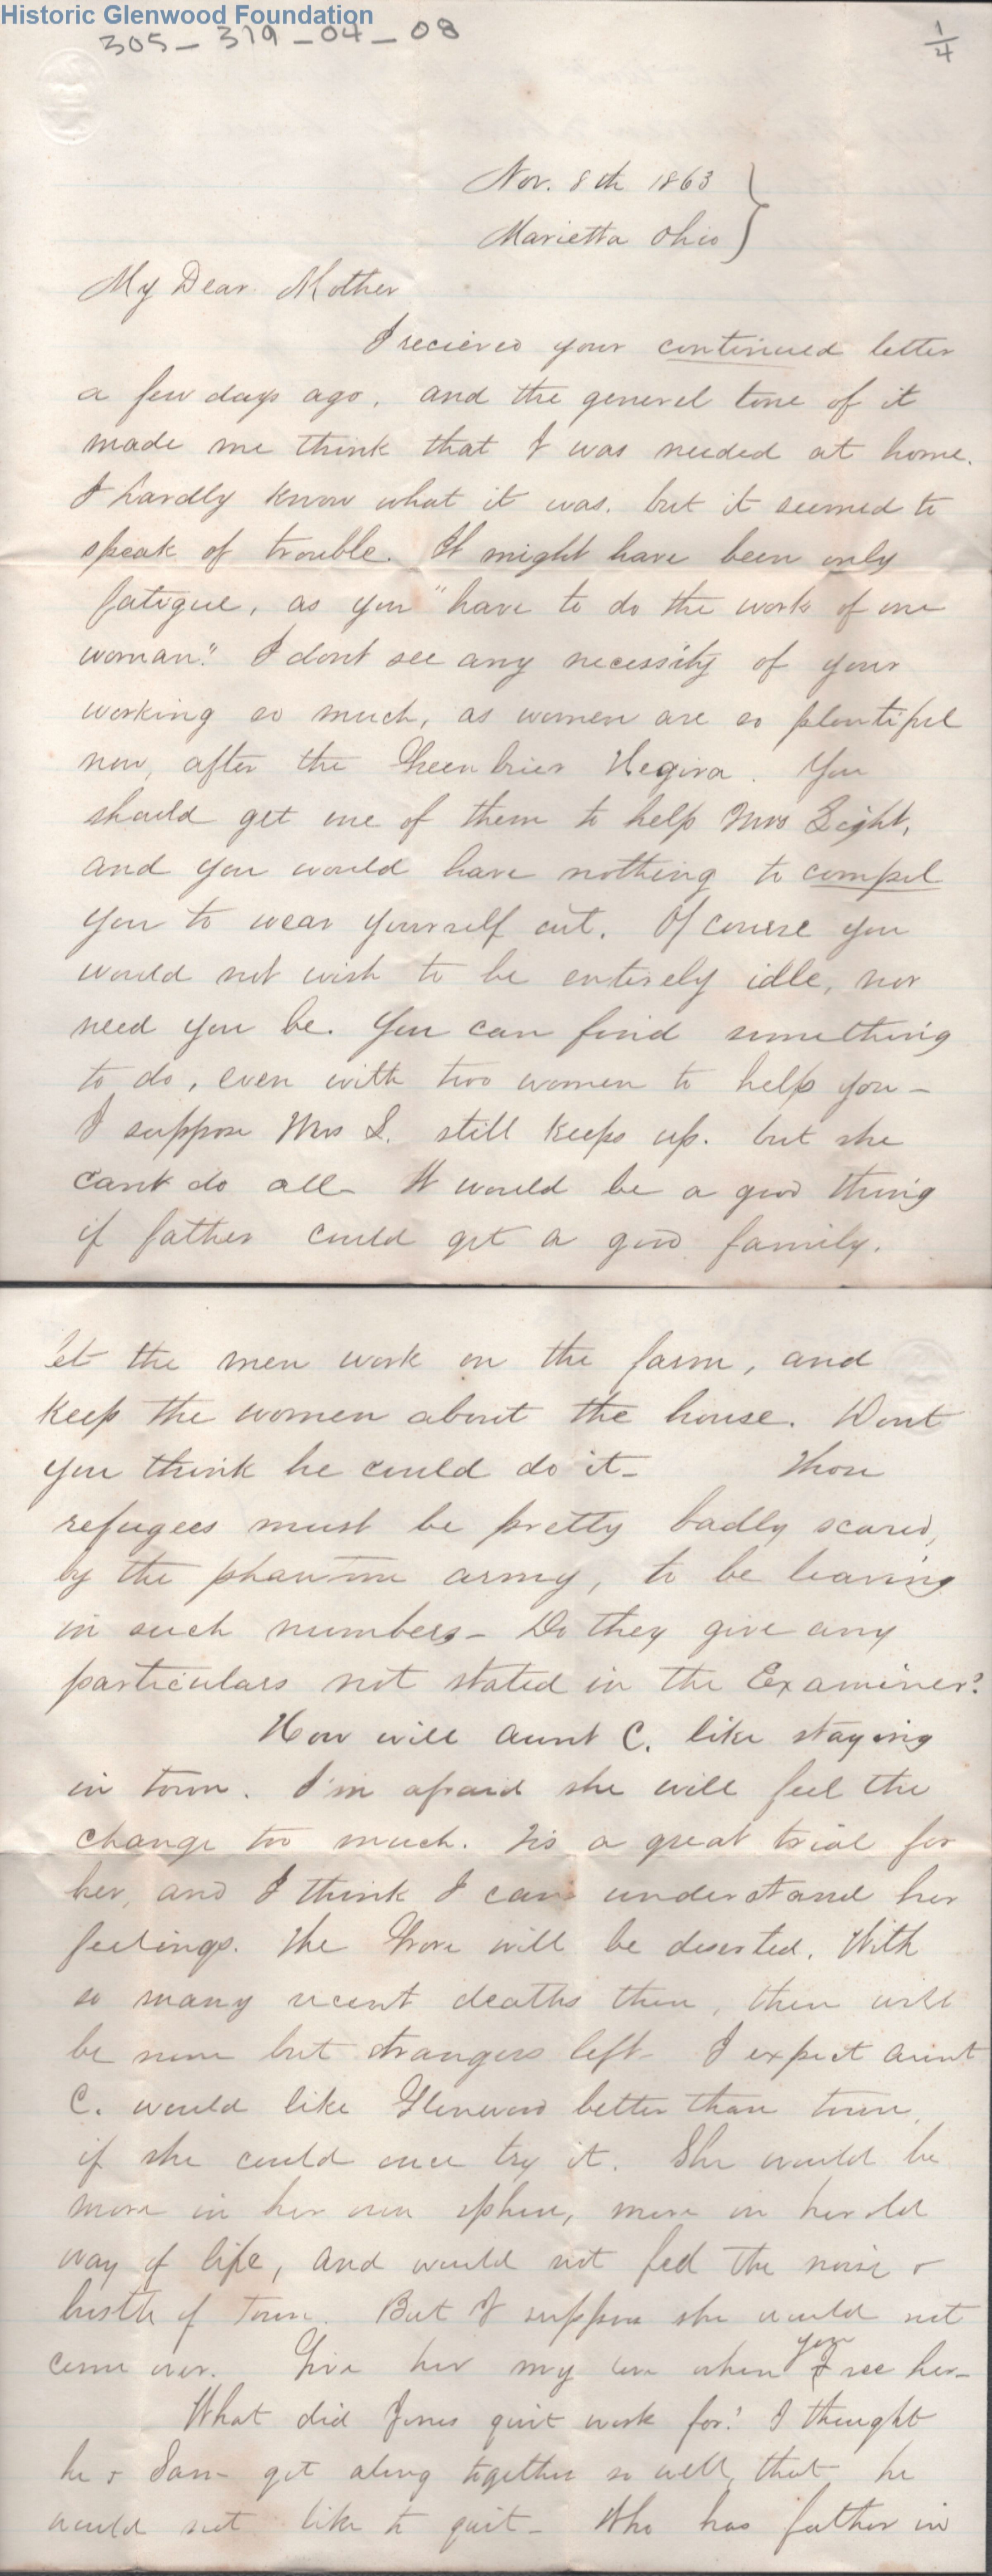 Historic Glenwood Foundation
305-319-04-08
1/4
Nov. 8th 1863
Marietta Ohio
My Dear Mother
I recieved your continued letter
a few days ago, and the general tone of it
made me think that I was needed at home.
I hardly know what it was, but it seemed to
speak of trouble. It might have been only
fatigue, as you "have to do the work of one
woman." I dont see any necessity of your
working so much, as women are so plentiful
now, after the Greenbrier Hegira. You
should get one of them to help Mrs Light,
and you would have nothing to compel
you to wear yourself out. Of course you
would not wish to be entirely idle, nor
need you be. You can find something
to do, even with two women to help you -
I suppose Mrs L. still keeps up. but she
cant do all - It would be a good thing
if father could get a good family.
let the men work on the farm, and
keep the women about the house. Dont
you think he could do it - Those
refugees must be pretty badly scared,
by the phantom army, to be leaving
in such numbers - Do they give any
particulars not stated in the Examiner?
How will aunt C. like staying
in town. I'm afraid she will feel the
change too much. Tis a great trial for
her, and I think I can understand her
feelings. The Grove will be deserted. With
so many recent deaths there, there will
be none but strangers left - I expect aunt
C. would like Glenwood better than town,
if she could once try it. She would be
more in her own sphere, more in her old
way of life, and would not feel the noise &
bustle of town. But I suppose she would not
come over. Give her my love when you I see her -
What did Jones quit work for? I thought
he & Sam got along together so well, that he
would not like to quit - Who has father in